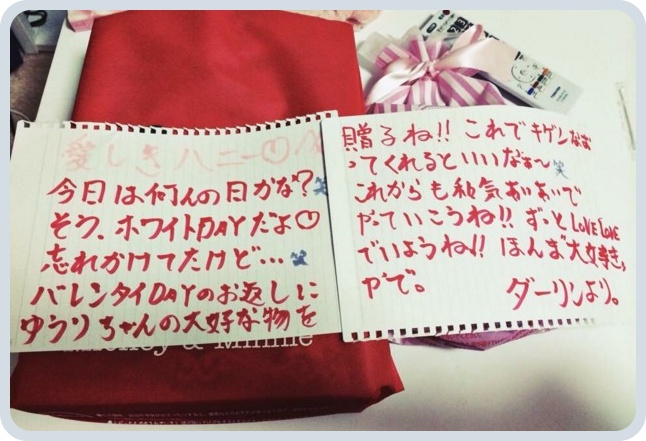 愛しきハニー♡
今日は何んの日かな?笑
そう、ホワイトDAYだよ♡
忘れかけてたけど…笑
バレンタイDAYのお返しに
ゆうりちゃんの大好な物を
贈るね!! これでキゲンなお
ってくれるといいなぁ〜笑
これからも和気あいあいで
やっていこうね!! ずっとLOVE LOVE
でいようね!! ほんま大好き。
やで。 ダーリンより。
Mickey & Minnie